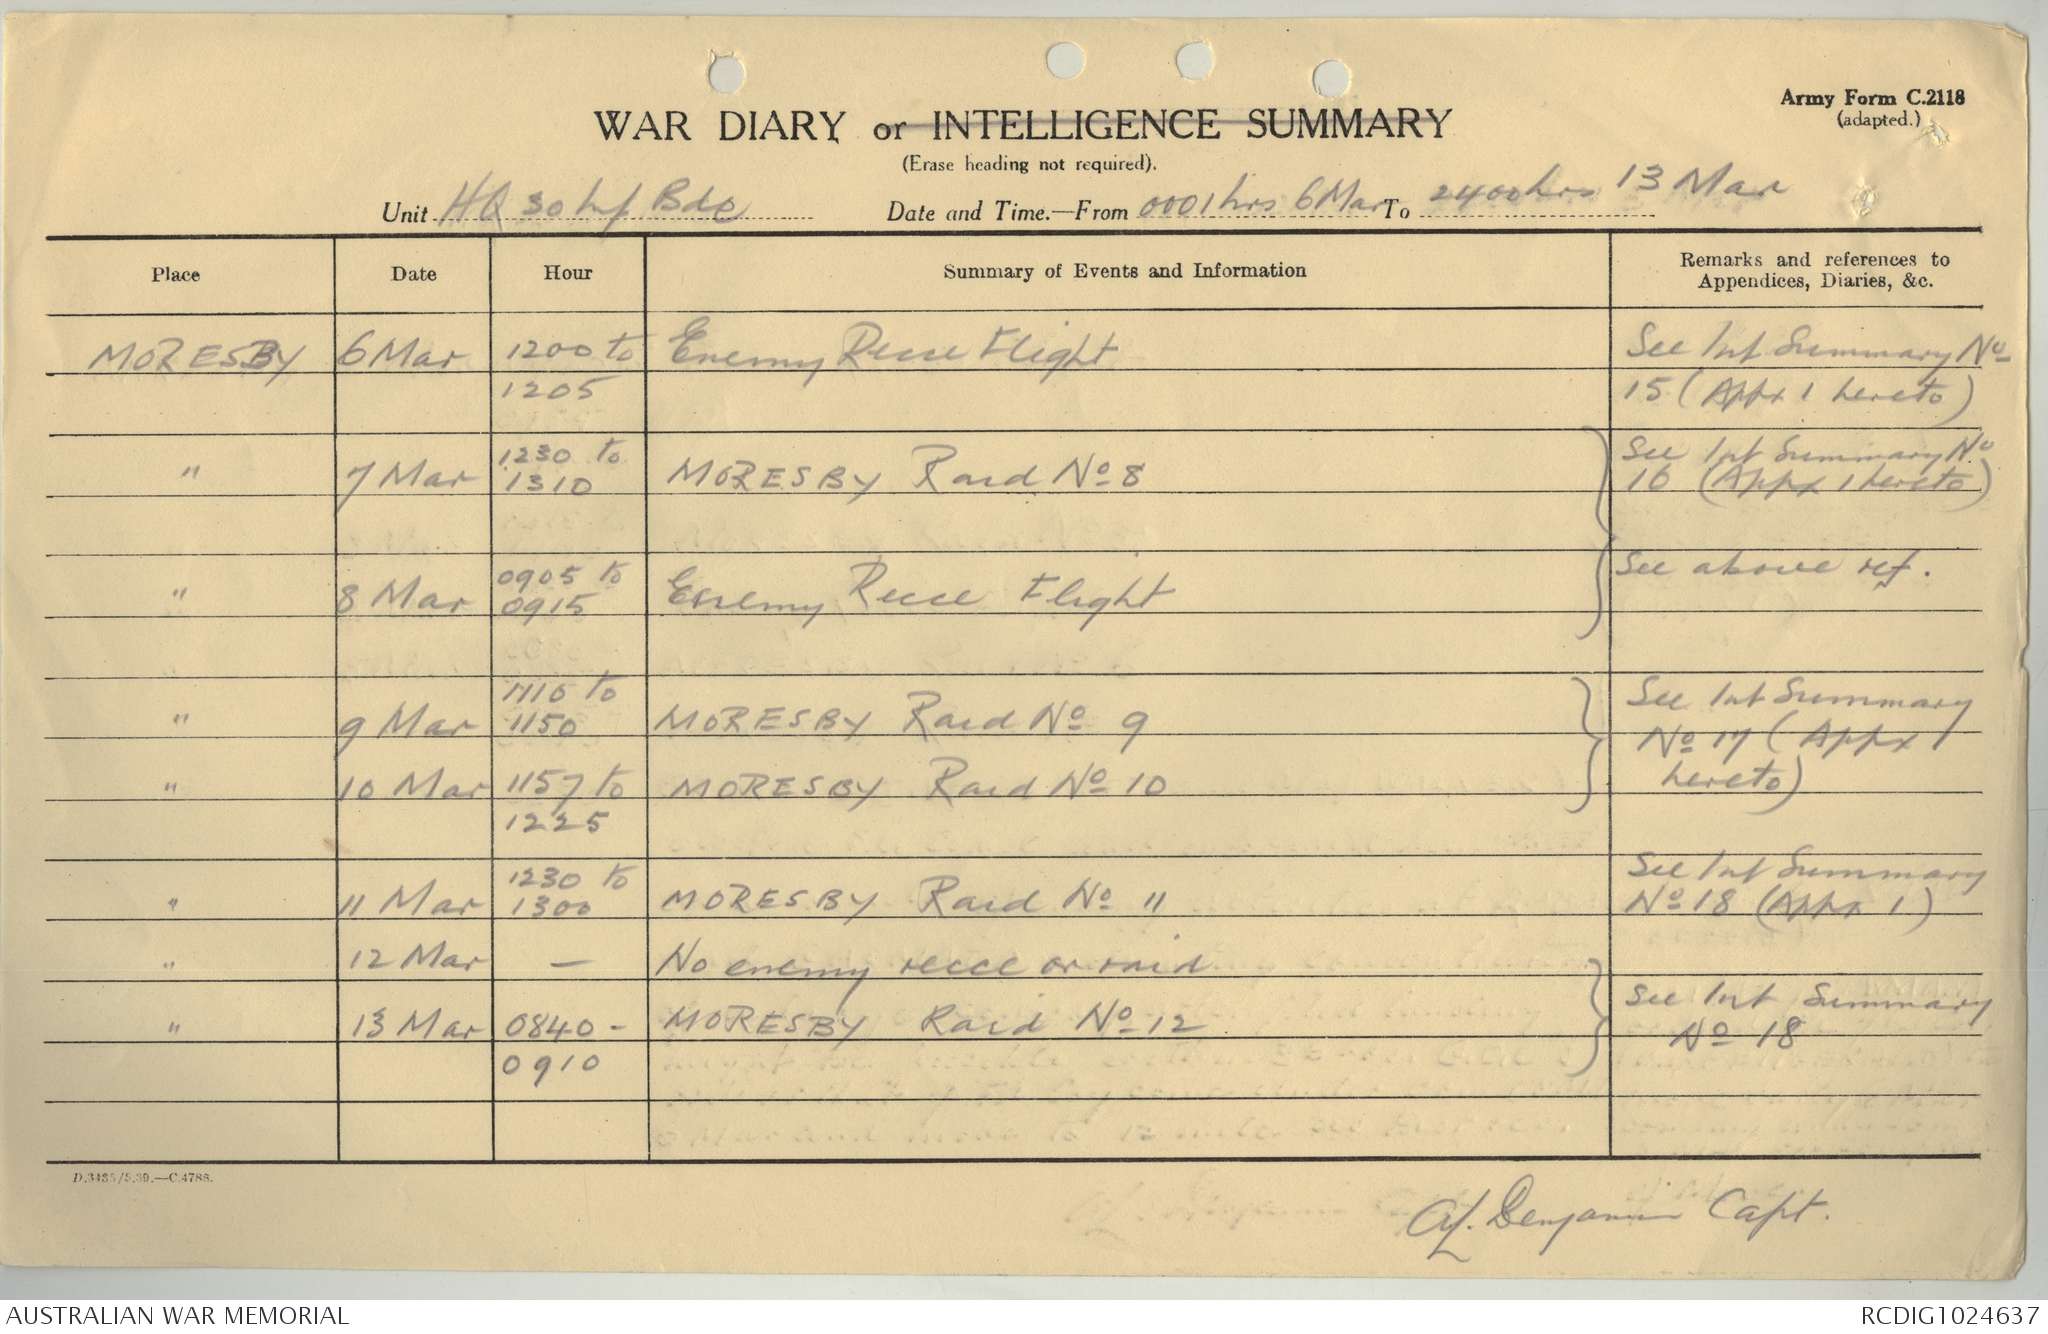 Army Form C.2118
(adapted.)
WAR DIARY or INTELLIGENCE SUMMARY
(Erase heading not required).
Unit HQ 30 Inf Bde Date and Time.—From 0001hrs 6 Mar To 2400hrs 13 Mar
Place Date Hour Summary of Events and Information Remarks and references to
Appendices, Diaries, &c.
MORESBY 6 Mar 1200 to Enemy Recce Flight See Int Summary No
1205 15 (Appx 1 hereto)
" 7 Mar 1230 to MORESBY Raid No 8 See Int Summary No
1310 16 (Appx 1 hereto)
" 8 Mar 0905 to Enemy Recce Flight See above ref.
0915
" 9 Mar 1110 to MORESBY Raid No 9 See Int Summary
1150 No 17 (Appx 1
" 10 Mar 1157 to MORESBY Raid No 10 hereto)
1225
" 11 Mar 1230 to MORESBY Raid No 11 See Int Summary
1300 No 18 (Appx 1)
" 12 Mar — No enemy recce or raid
" 13 Mar 0840 - MORESBY Raid No 12 See Int Summary
0910 No 18
D.3435/5.39.—C.4788.
Benjamin Capt.
AUSTRALIAN WAR MEMORIAL
RCDIG1024637